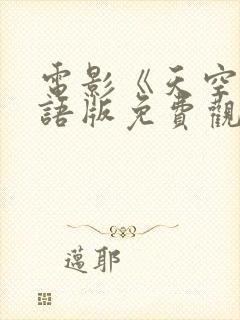 電影《天空
語版免費觀
邁耶